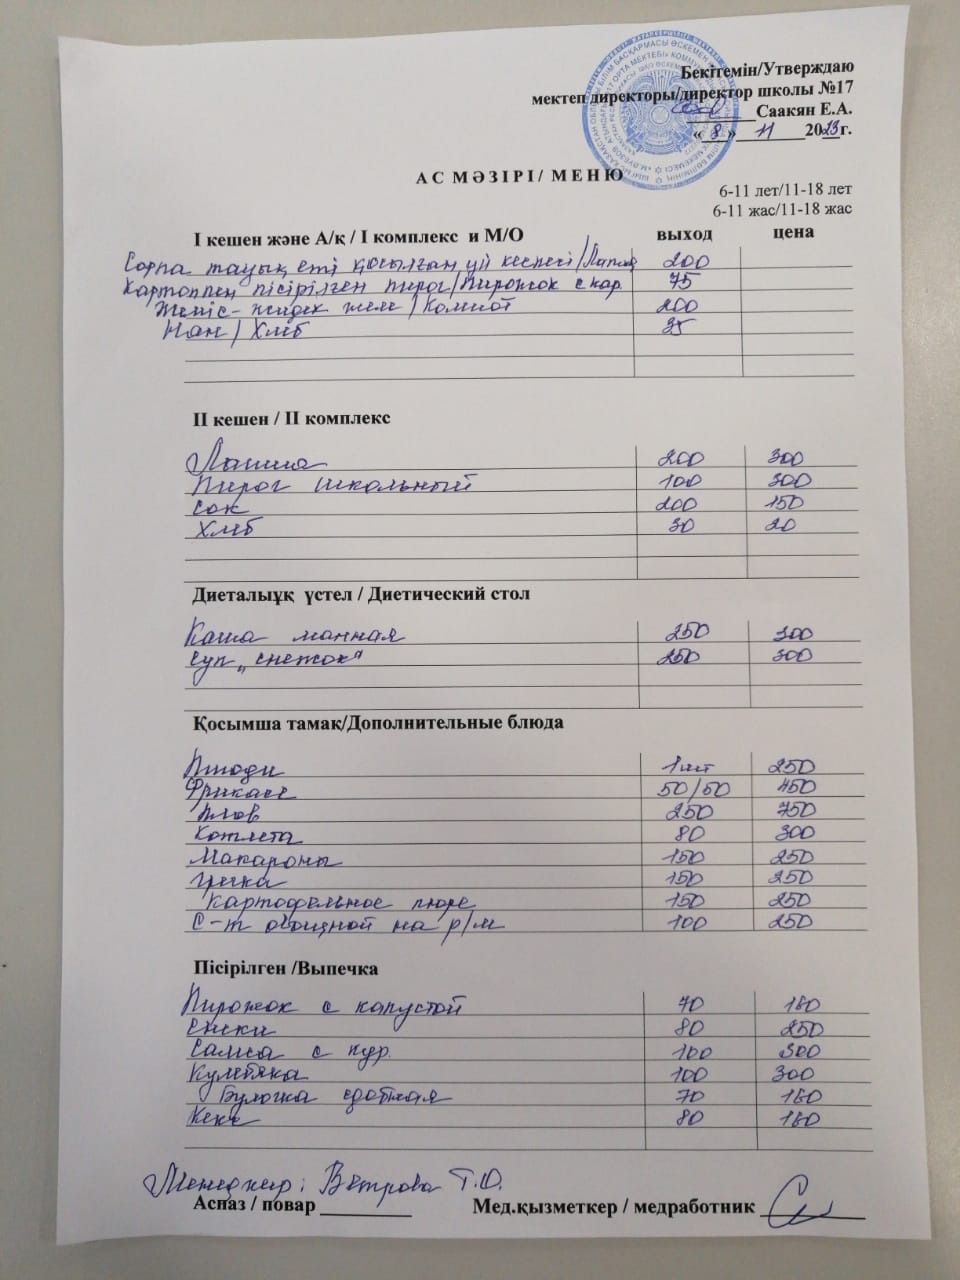 Бекітемін/Утверждаю
мектеп директоры/директор школы №17
Саакян Е.А.
« 8 » 11 2023г.
АС МӘЗІРІ/ МЕНЮ
6-11 лет/11-18 лет
6-11 жас/11-18 жас
І кешен және А/қ / І комплекс и М/О выход цена
Сорпа тауық еті қосылған үй кеспесі/Лапша 200
Картоппен пісірілген пирог/Пирожок с кар. 75
Жеміс-жидек желе/Компот 200
Нан/Хлеб
ІІ кешен / ІІ комплекс
Лапша 200 300
Пирог школьный 100 300
Сок 200 150
Хлеб 30 20
Диеталыұқ үстел / Диетический стол
Каша манная 250 300
Суп „снежок" 250 300
Қосымша тамақ/Дополнительные блюда
1шт 250
Фрикасе 50/50 450
Плов 250 750
Котлета 80 300
Макароны 150 250
Гречка 150 250
Картофельное пюре 150 250
С-т овощной на р/м 100 250
Пісірілген /Выпечка
Пирожок с капустой 70 180
80 250
Самса с кур. 100 300
Кулебяка 100 300
Булочка сдобная 70 180
Кекс 80 180
Менеджер: Ветрова Т.О.
Аспаз / повар Мед.қызметкер / медработник